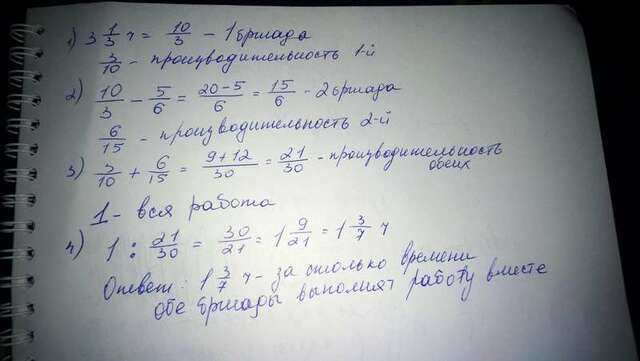 1) 3 1/3 ч = 10/3 - 1 бригада
3/10 - производительность 1-й
2) 10/3 - 5/6 = 20-5/6 = 15/6 - 2 бригада
6/15 - производительность 2-й
3) 3/10 + 6/15 = 9+12/30 = 21/30 - производительность обеих
1 - вся работа
4) 1 : 21/30 = 30/21 = 1 9/21 = 1 3/7 ч
Ответ: 1 3/7 ч - за столько времени
обе бригады выполнят работу вместе